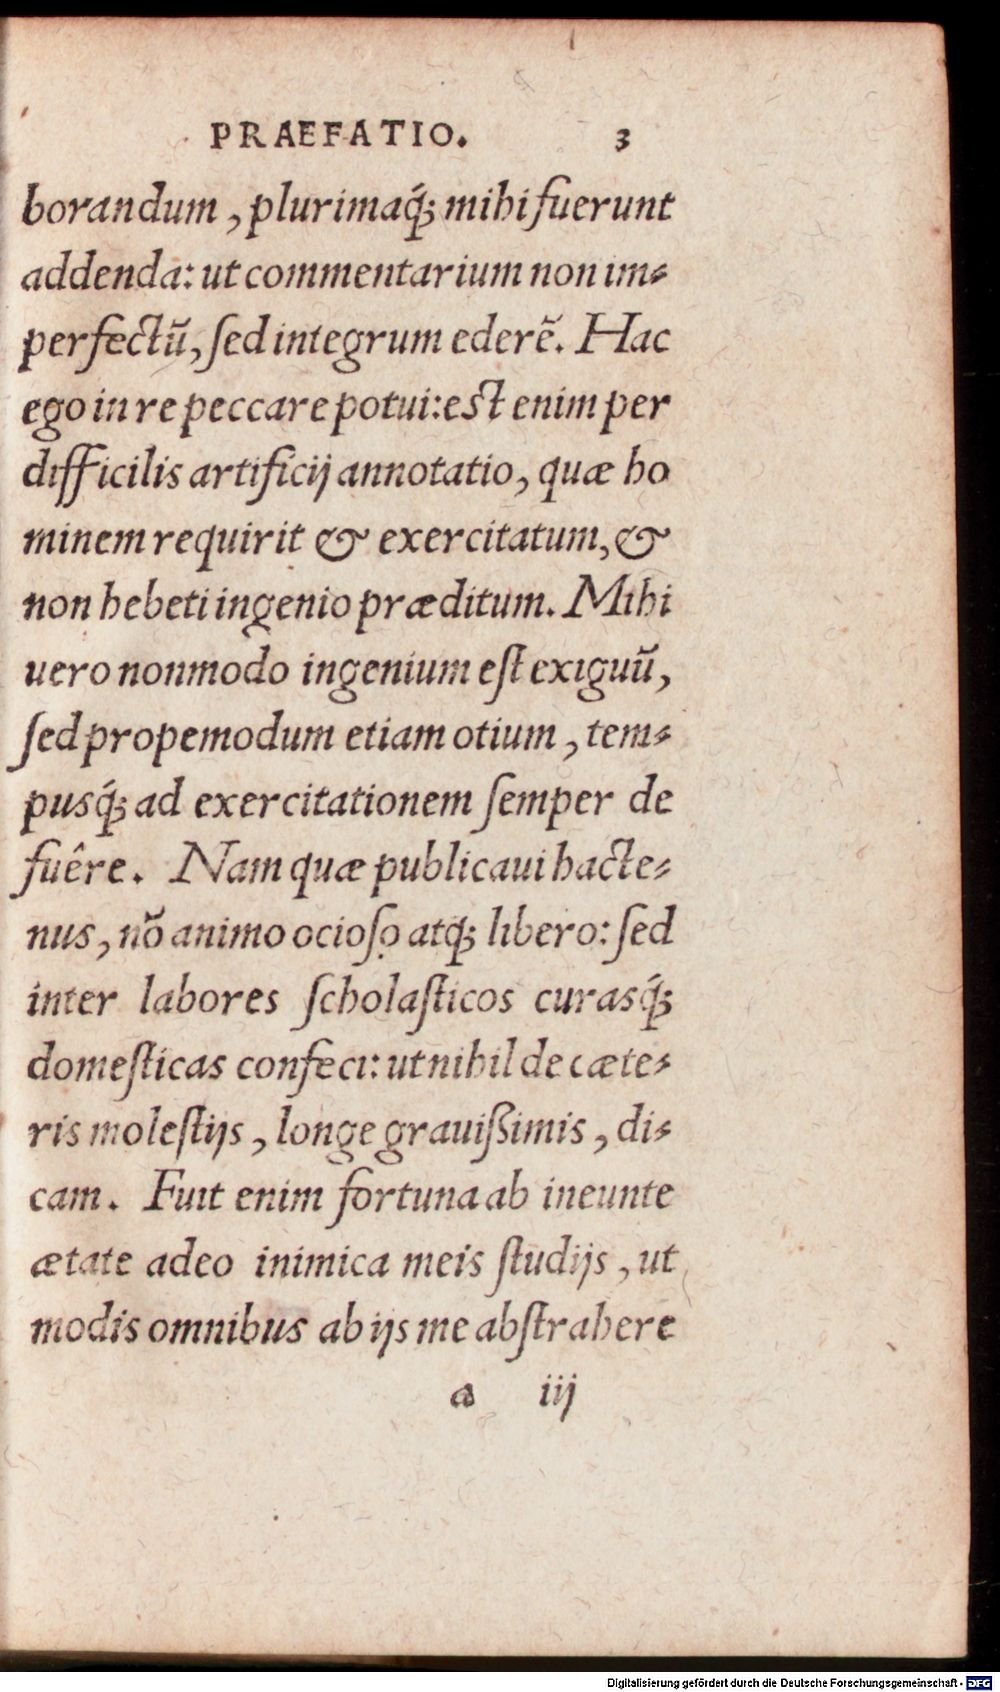 PRAEFATIO. 3
borandum, plurimaq́; mihi fuerunt
addenda: ut commentarium non im-
perfectũ, sed integrum ederẽ. Hac
ego in re peccare potui: est enim per
difficilis artificij annotatio, quæ ho
minem requirit & exercitatum, &
non hebeti ingenio præditum. Mihi
uero nonmodo ingenium est exiguũ,
sed propemodum etiam otium, tem-
pusq́; ad exercitationem semper de
fuêre. Nam quæ publicaui hacte-
nus, nõ animo ocioso atq; libero: sed
inter labores scholasticos curasq́;
domesticas confeci: ut nihil de cæte-
ris molestijs, longe grauißimis, di-
cam. Fuit enim fortuna ab ineunte
ætate adeo inimica meis studijs, ut
modis omnibus ab ijs me abstrahere
a iij
Digitalisierung gefördert durch die Deutsche Forschungsgemeinschaft - DFG